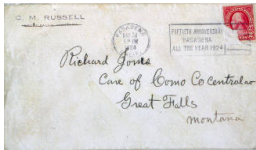 C. M. RUSSELL
PASADENA
1924
FIFTIETH ANNIVERSARY
PASADENA
ALL THE YEAR 1924
Richard Jones
Care of Como Co centralav
Great Falls
montana